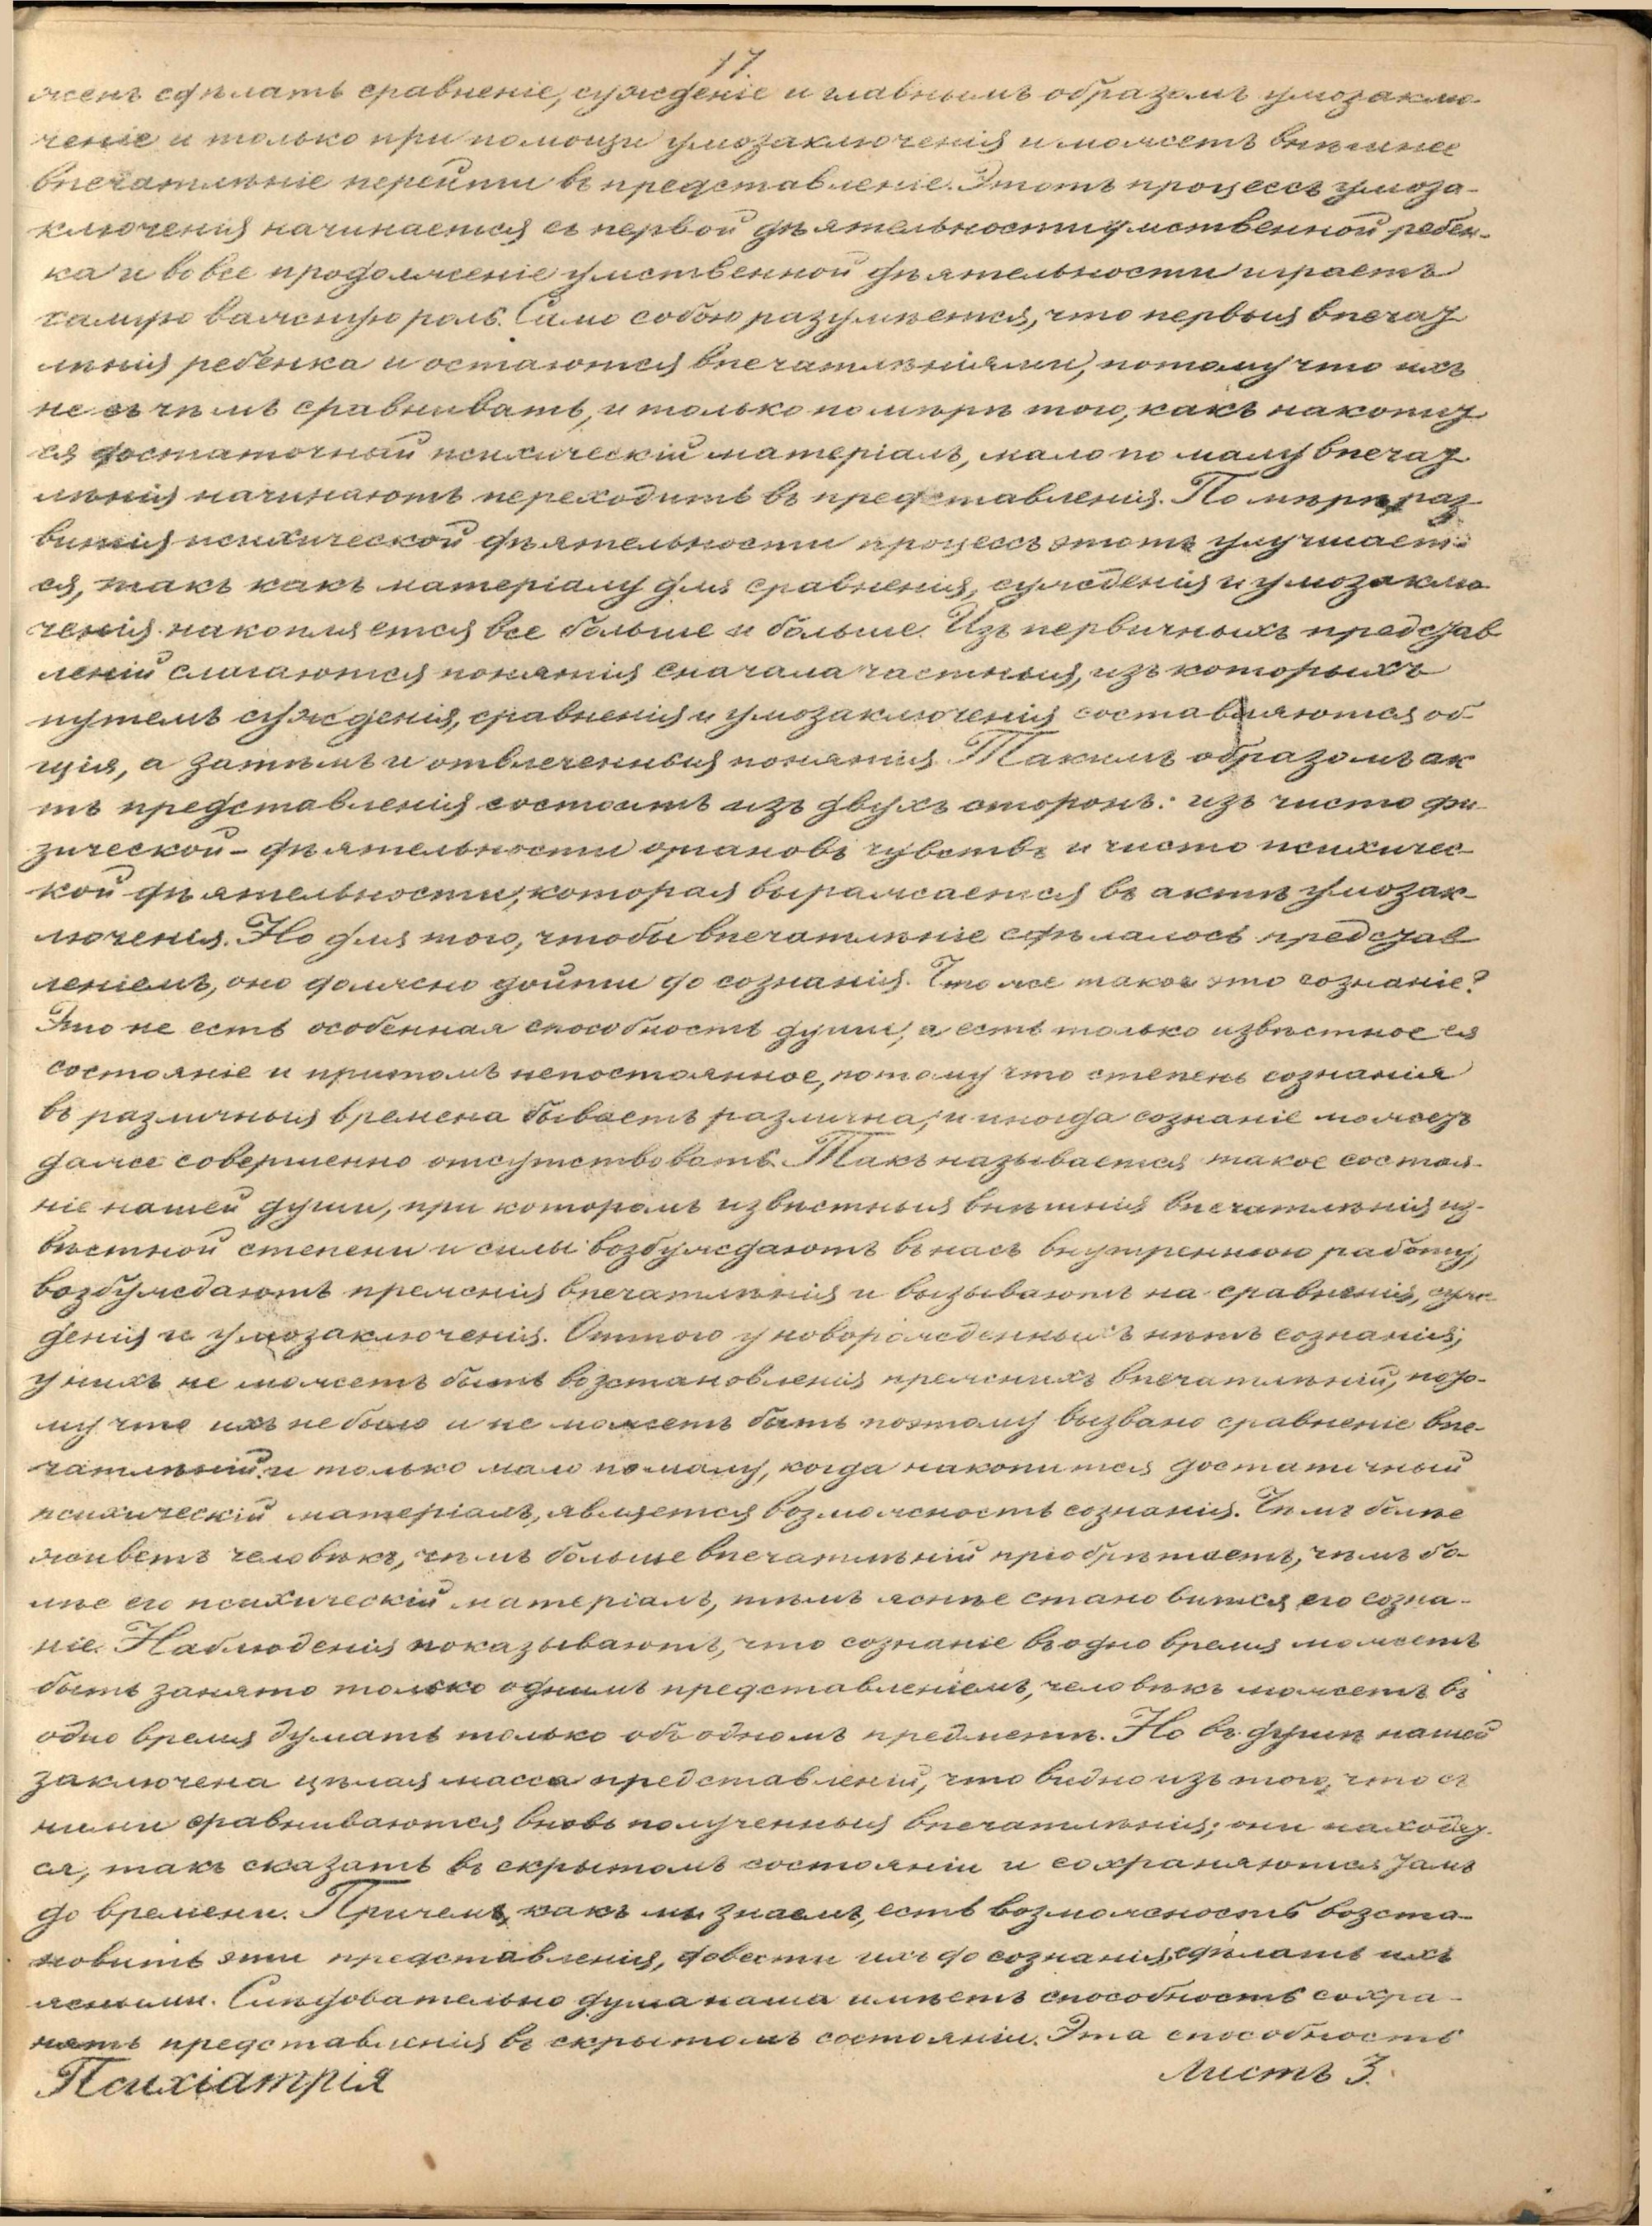 17.
женъ сдѣлать сравненіе, сужденіе и главнымъ образомъ умозаклю-
ченіе и только при помощи умозаключенія и можетъ внѣшнее
впечатлѣніе перейти въ представленіе. Этотъ процессъ умоза-
ключенія начинается съ первой дѣятельности умственной ребен-
ка и во все продолженіе умственной дѣятельности играетъ
самую важную роль. Само собою разумѣется, что первыя впечат
лѣнія ребенка и остаются впечатлѣніями, потому что ихъ
не съ чѣмъ сравнивать, и только по мѣрѣ того, какъ накопит
ся достаточный психическій матеріалъ, мало по малу впечат
лѣнія начинаютъ переходить въ представленія. По мѣрѣ раз
витія психической дѣятельности процессъ этотъ улучшает-
ся, такъ какъ матеріалу для сравненія, сужденія и умозаклю
ченія накопляется все больше и больше. Изъ первичныхъ представ
леній слагаются понятія сначала частныя, изъ которыхъ
путемъ сужденія, сравненія и умозаключенія составляются об-
щія, а затѣмъ и отвлеченныя понятія. Такимъ образомъ ак
тъ представленія состоитъ изъ двухъ сторонъ: изъ чисто фи-
зической - дѣятельности органовъ чувствъ и чисто психичес-
кой дѣятельности, которая выражается въ актѣ умозак-
люченія. Но для того, чтобы впечатлѣніе сдѣлалось представ
леніемъ, оно должно дойти до сознанія. Что же такое это сознаніе?
Это не есть особенная способность души, а есть только извѣстное ея
состояніе и притомъ непостоянное, потому что степень сознанія
въ различныя времена бываетъ различна, и иногда сознаніе можетъ
даже совершенно отсутствовать. Такъ называется такое состоя-
ніе нашей души, при которомъ извѣстныя внѣшнія впечатлѣнія из-
вѣстной степени и силы возбуждаютъ въ насъ внутреннюю работу,
возбуждаютъ прежнія впечатлѣнія и вызываютъ на сравненія, суж-
денія и умозаключенія. Оттого у новорожденныхъ нѣтъ сознанія;
у нихъ не можетъ быть возстановленія прежнихъ впечатлѣній, пото-
му что ихъ не было и не можетъ быть поэтому вызвано сравненіе впе-
чатлѣній и только мало помалу, когда накопится достаточный
психическій матеріалъ, является возможность сознанія. Чѣмъ болѣе
живетъ человѣкъ, чѣмъ больше впечатлѣній пріобрѣтаетъ, чѣмъ бо-
лѣе его психическій матеріалъ, тѣмъ яснѣе становится его созна-
ніе. Наблюденія показываютъ, что сознаніе въ одно время можетъ
быть занято только однимъ представленіемъ, человѣкъ можетъ въ
одно время думать только объ одномъ предметѣ. Но въ душѣ нашей
заключена цѣлая масса представленій, что видно изъ того, что съ
ними сравниваются вновь полученныя впечатлѣнія; они находят-
ся, такъ сказать въ скрытомъ состояніи и сохраняются тамъ
до времени. Причемъ, какъ мы знаемъ, есть возможность возста-
новить эти представленія, довести ихъ до сознанія, сдѣлать ихъ
ясными. Слѣдовательно душа наша имѣетъ способность сохра-
нять представленія въ скрытомъ состояніи. Эта способность
Психіатрія
Листъ 3.